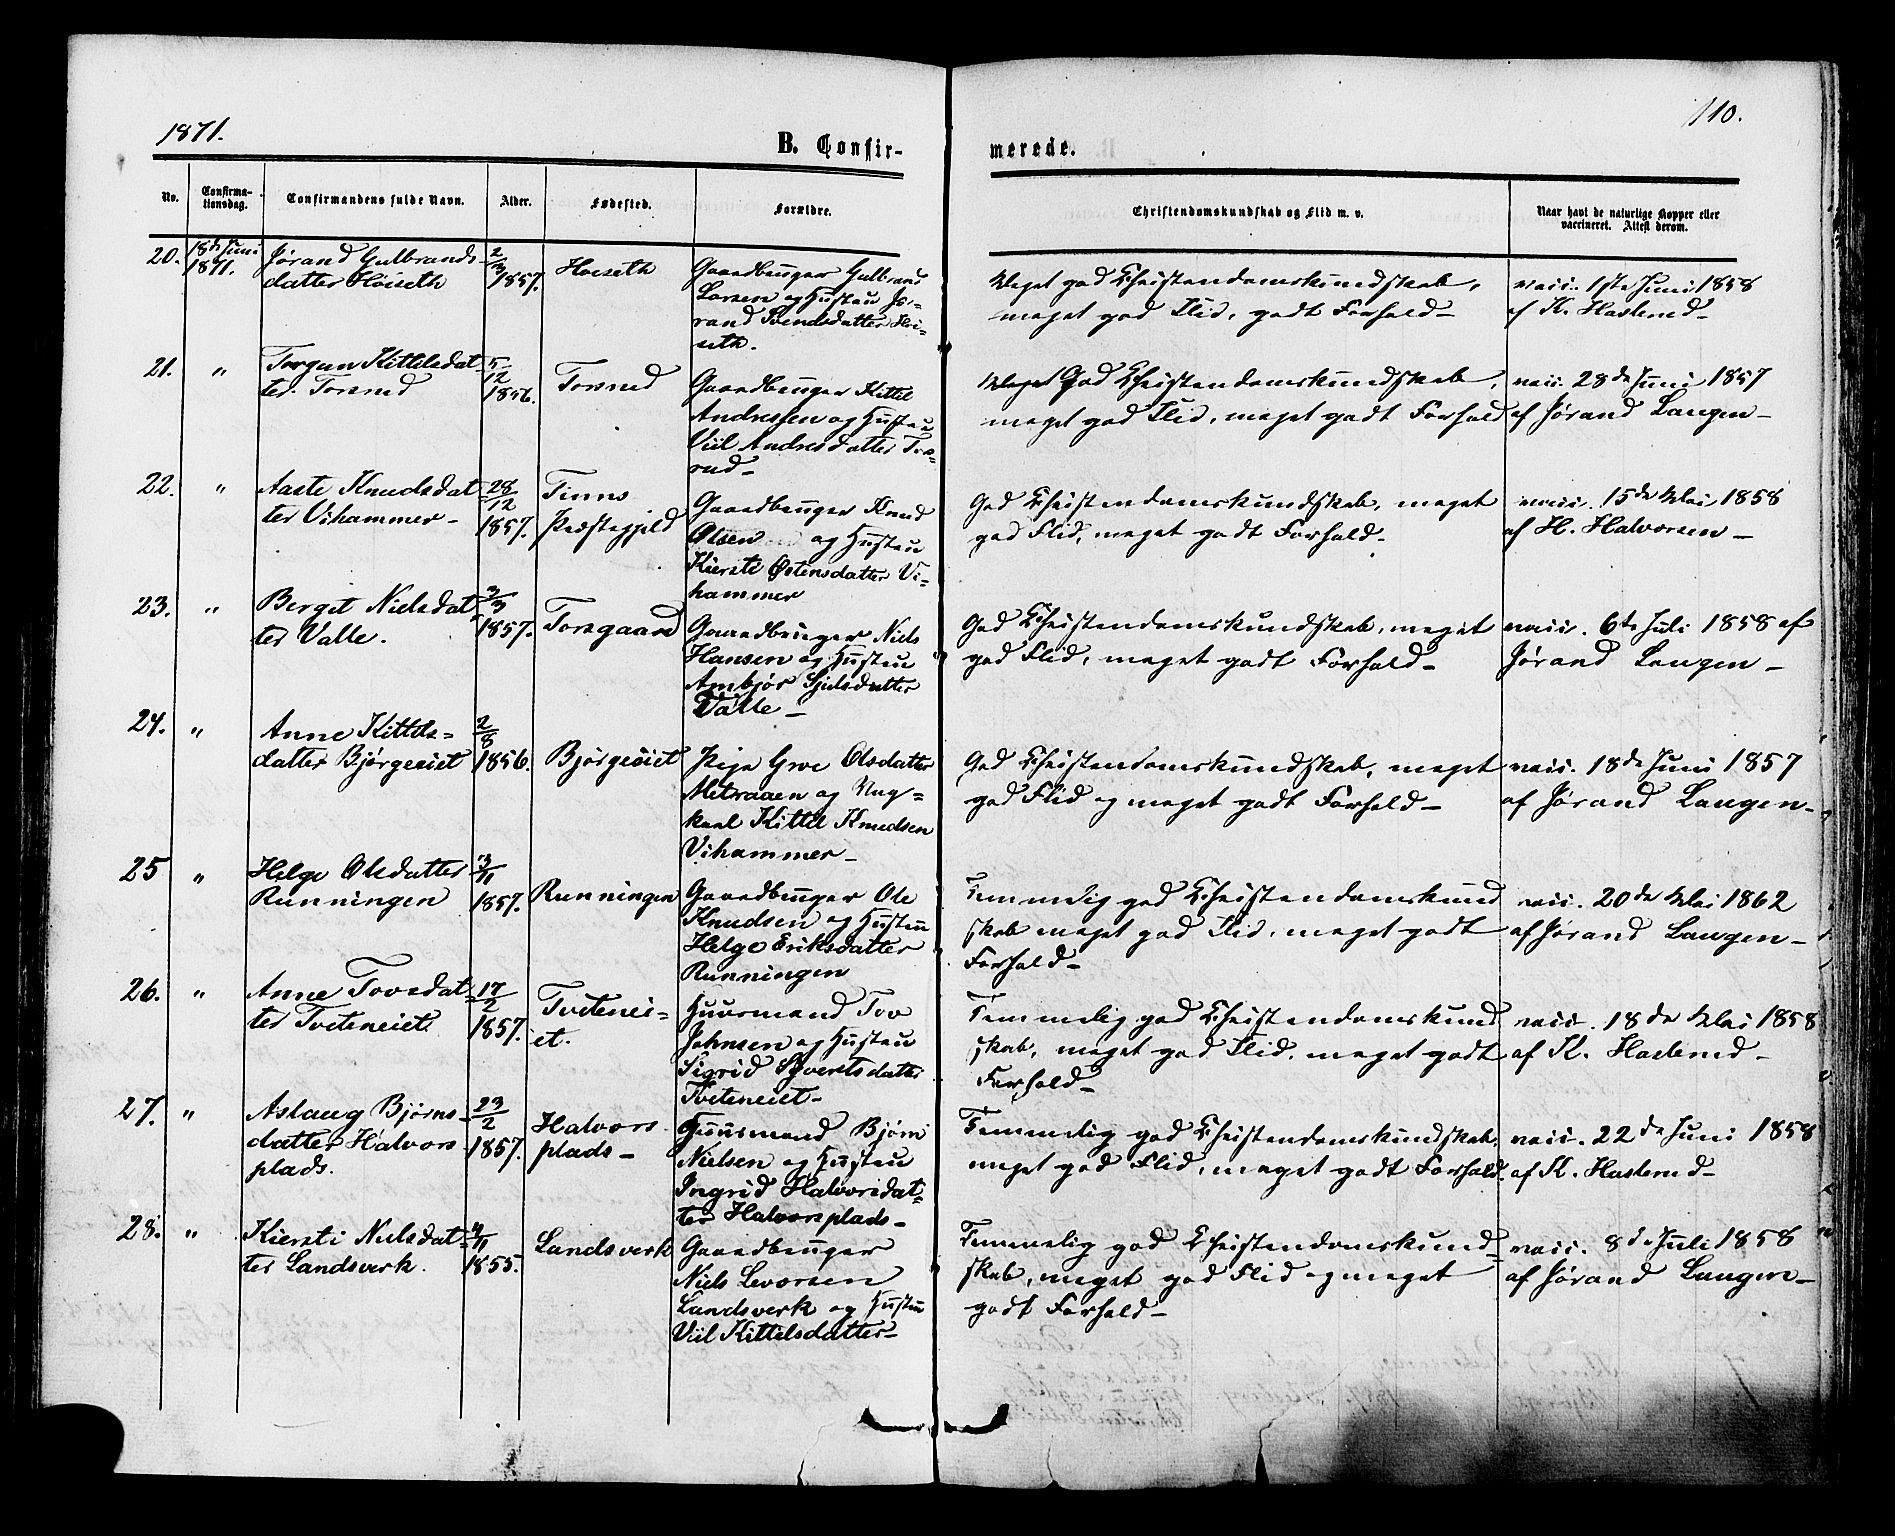 1871.
110.
B. Confir-
merede.
No.
Confirma-
tionsdag.
Confirmandens fulde Navn.
Alder.
Fødested.
Forældre.
Christendomskundskab og Flid m. v.
Naar havt de naturlige Kopper eller
vaccineret. Attest derom.
20. 18de Juni
1871.
Jørand Gulbrands-
datter Höiseth
2/3 1857.
Hoiseth
Gaardbruger Gulbrand
Larsen og Hustru Jø-
rand Svendsdatter Høi-
seth.
Meget god Christendomskundskab,
meget god Flid, godt Forhold-
vacc. 1ste Juni 1858
af K. Haslerud-
21. "
Torgun Kittelsdat-
ter Torsrud
5/12
1856.
Torsrud
Gaardbruger Kittil
Andresen og Hustru
Viil Andresdatter Tors-
rud-
Meget God Christendomskundskab,
meget god Flid, meget godt Forhold
vacc. 28de Juni 1857
af Jørand Laugen-
22. "
Aaste Knudsdat-
ter Vihammer-
28/12
1857.
Tinns
Præstegjeld
Gaardbruger Knud
Olsen og Hustru
Kiersti Østensdatter Vi-
hammer
God Christendomskundskab, meget
god Flid, meget godt Forhold.
vacc. 15de Mai 1858
af H. Halvorsen-
23. "
Berget Nielsdat-
ter Valle.
3/3
1857.
Torsgaard
Gaardbruger Niels
Hansen og Hustru
Ambjør Gjulsdatter
Valle-
God Christendomskundskab, meget
god Flid, meget godt Forhold-
vacc. 6te Juli 1858 af
Jørand Laugen-
24. "
Anne Kittels-
datter Bjørgeeiet
2/8
1856.
Bjørgeeiet
Pige Groe Olsdatter
Metraaen og Ung-
karl Kittel Knudsen
Vihammer-
God Christendomskundskab, meget
god Flid og meget godt Forhold-
vacc. 18de Juni 1857
af Jørand Laugen-
25 "
Helge Olsdatter
Runningen
3/11
1857.
Runningen
Gaardbruger Ole
Knudsen og Hustru
Helge Eriksdatter
Runningen
Temmelig god Christendomskund
skab meget god Flid, meget godt
Forhold-
vacc. 20de Mai 1862
af Jørand Laugen-
26. "
Anne Tovsdat-
ter Tveteneiet.
17/2
1857.
Tvetenei-
et.
Huusmand Tov
Johnsen og Hustru
Sigrid Syvertsdatter
Tveteneiet-
Temmelig god Christendomskund
skab, meget god Flid, meget godt
Forhold-
vacc. 18de Mai 1858
af K. Haslerud-
27. "
Aslaug Bjørns-
datter Halvors
plads.
23/2
1857.
Halvors
plads-
Huusmand Bjørn
Nielsen og Hustru
Ingrid Halvorsdat-
ter Halvorsplads-
Temmelig god Christendomskundskab,
meget god Flid, meget godt Forhold.
vacc. 22de Juni 1858
af K. Haslerud-
28. "
Kiersti Nielsdat-
ter Landsverk.
4/11
1855.
Landsverk
Gaardbruger
Niels Levorsen
Landsverk og Hustru
Viil Kittilsdatter-
Temmelig god Christendomskund-
skab, meget god Flid og meget
godt Forhold-
vacc. 8de Juli 1858
af Jørand Laugen-